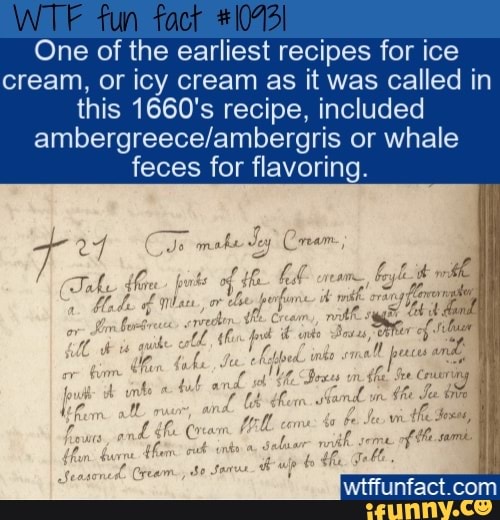 WTF fun fact #10931
One of the earliest recipes for ice
cream, or icy cream as it was called in
this 1660's recipe, included
ambergreece/ambergris or whale
feces for flavoring.
27 To make Icy Cream;
Take three pints of the best cream, boyle it with
a blade of Mace, or else perfume it with orang flower water
or Ambergreece, sweeten the Cream, with sugar let it stand
till it is quite cold, then put it into Boxes, ether of Siluer
or tinn then take, Ice chopped into small peeces and
putt it into a tub and set the Boxes in the Ice couering
them all ouer, and let them stand in the Ice two
howrs, and the Cream Will come to be Ice in the Boxes,
then turne them out into a saluar with some of the same
Seasoned Cream, so sarue it up to the Table.
wtffunfact.com
ifunny.co